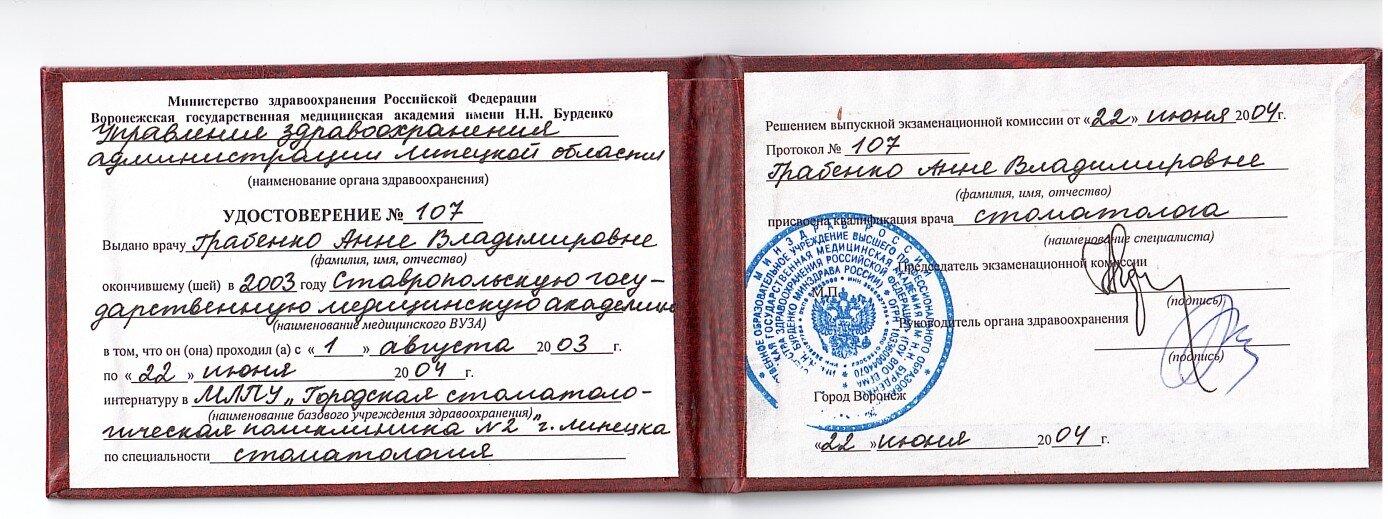 Министерство здравоохранения Российской Федерации
Воронежская государственная медицинская академия имени Н.Н. Бурденко
Управления здравоохранения
администрации Липецкой области
(наименование органа здравоохранения)
УДОСТОВЕРЕНИЕ № 107
Выдано врачу Грабенко Анне Владимировне
(фамилия, имя, отчество)
окончившему (шей) в 2003 году Ставропольскую госу-
дарственную медицинскую академию
(наименование медицинского ВУЗА)
в том, что он (она) проходил (а) с «1» августа 2003г.
по «22» июня 2004г.
интернатуру в МЛПУ „Городская стоматоло-
(наименование базового учреждения здравоохранения)
гическая поликлиника №2" г. Липецка
по специальности стоматология
Решением выпускной экзаменационной комиссии от «22» июня 2004г.
Протокол № 107
Грабенко Анне Владимировне
(фамилия, имя, отчество)
присвоена квалификация врача стоматолога
(наименование специалиста)
Председатель экзаменационной комиссии
М.П.
(подпись)
Руководитель органа здравоохранения
(подпись)
Город Воронеж
«22» июня 2004г.